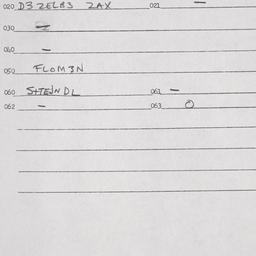 020 D3 ZELBS ZAX 021 -
030 =
040 -
050 FLOM3N
060 STEINDL 061 -
062 - 063 O